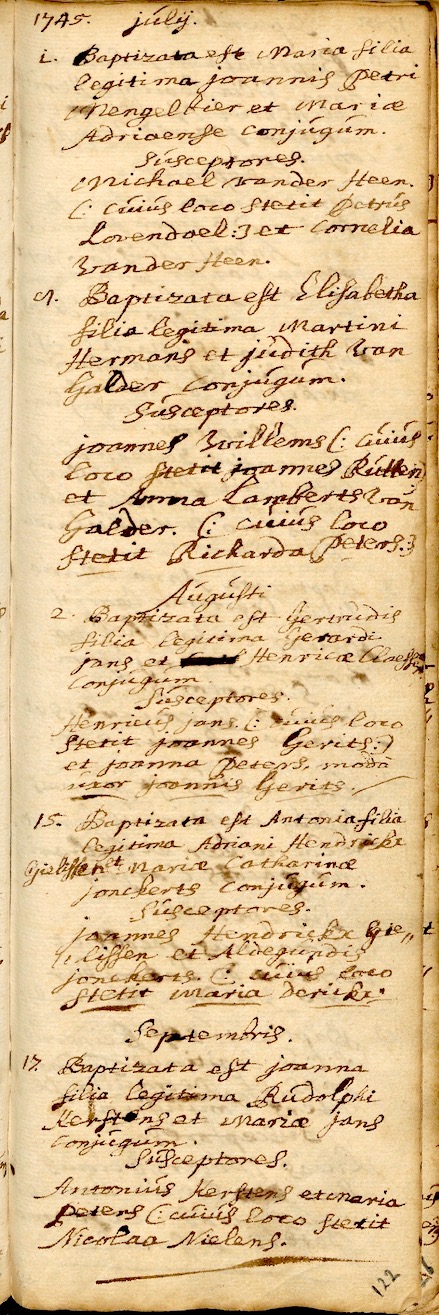 1745. julij.
1. Baptizata est Maria filia
legitima joannis Petri
Mengelbier et Mariæ
Adriaense conjugum.
Susceptores.
Michael vander Heen.
(: cuius loco stetit Petrus
Lovendael :) et Cornelia
vander Heen.
Baptizata est Elisabetha
filia legitima Martini
Hermans et judith van
Galder conjugum.
Susceptores.
joannes Willems (: cuius
loco stetit joannes Rutten
et Anna Lamberts van
Galder. (: cuius loco
stetit Richarda Peters :)
Augusti
2. Baptizata est Gertrudis
filia legitima Gerardi
jans et Henricæ
conjugum.
Susceptores.
Henricus jans. (: cuius loco
stetit joannes Gerits :)
et joanna Peters, modo
uxor joannis Gerits.
15. Baptizata est Antonia filia
legitima Adriani Hendrickx
Gielissen et Mariæ Catharinæ
jonckerts conjugum.
Susceptores.
joannes Hendrickx Gie„
lissen et Aldegundis
jonckerts. (: cuius loco
stetit Maria Derickx.
Septembris.
17. Baptizata est joanna
filia legitima Rudolphi
Kerstens et Mariæ jans
conjugum.
Susceptores.
Antonius Kerstens et Maria
Peters (: cuius loco stetit
Nicolaa Nielens.
122